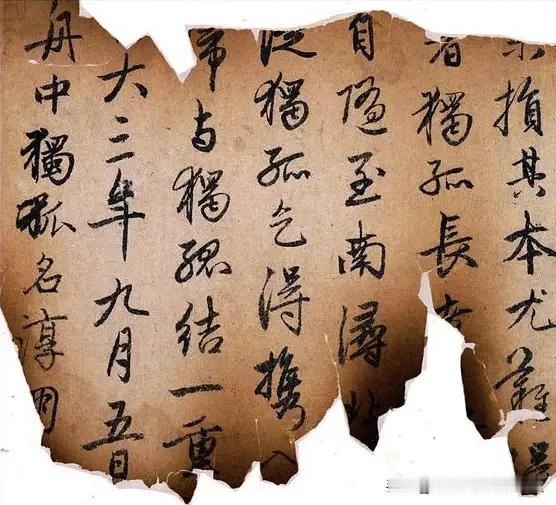 損其本尤難得
者獨孤長
自隨至南潯北
從獨孤乞得攜入
歸与獨孤結一重
大三年九月五日
舟中獨孤名淳朋